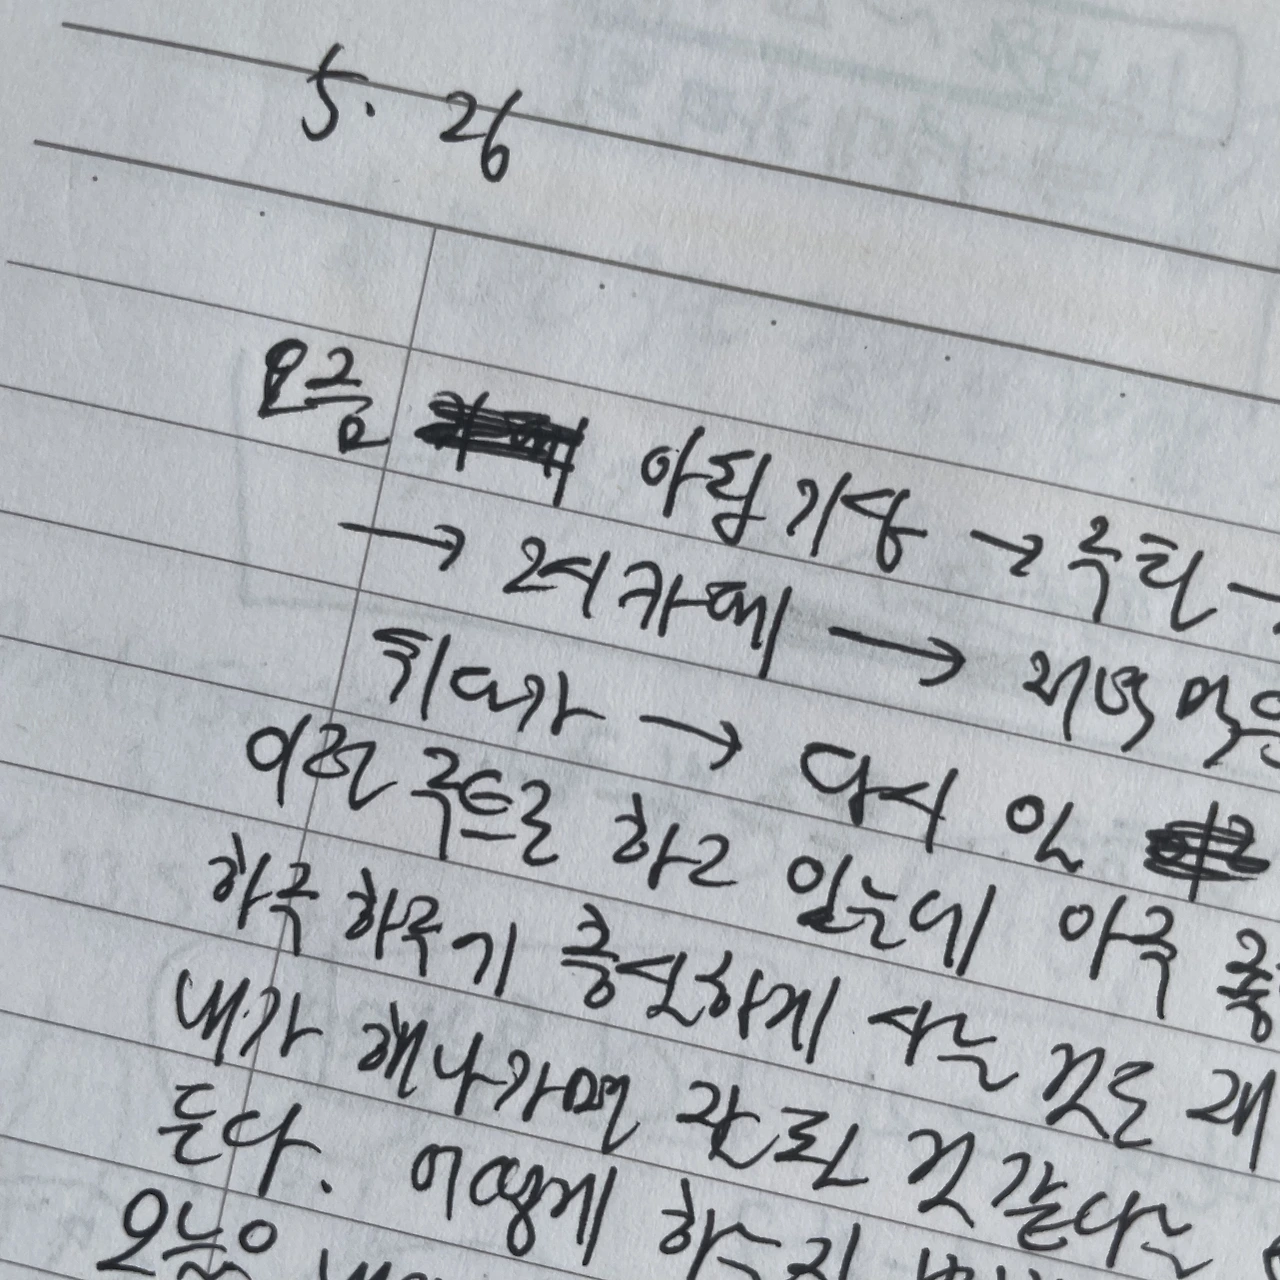 5. 26
요즘 아침 기상 → 수학 →
→ 2시 카페 → 저녁 먹음
뛰다가 → 다시 인
이런 루틴을 하고 있는데 아주 좋
하루 하루가 충실하게 사는 것도 재
내가 해나가면 잘 될 것 같다는
든다. 어떻게 하는지
오늘은